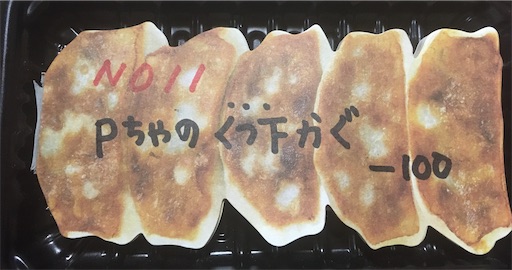 NO11
Pちゃのくう下かぐ
-100